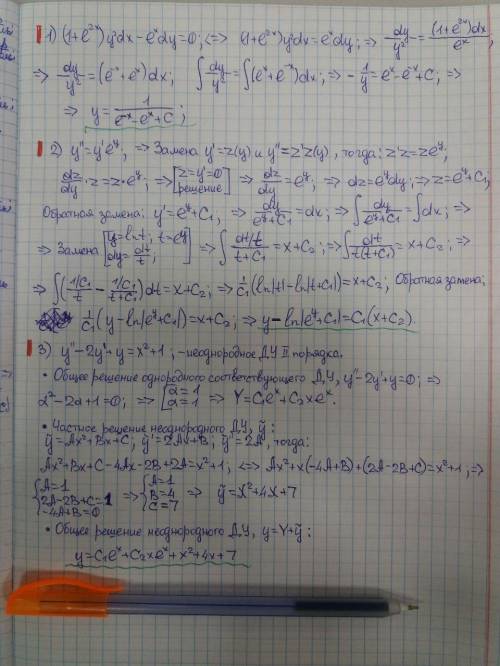 1) (1+e^{2x})y²dx-e^x dy=0; <=> (1+e^{2x})y²dx=e^x dy; => dy/y² = (1+e^{2x})dx/e^x;
=> dy/y² = (e^{-x}+e^x)dx; ∫dy/y² = ∫(e^x+e^{-x})dx; => -1/y = e^x-e^{-x}+C; =>
=> y = 1/(e^{-x}-e^x+C);
2) y''=y'e^y; => Замена y'=z(y) и y''=z'z(y), тогда: z'z=ze^y;
dz/dy·z=z·e^y; => [z=y'=0 решение] => dz/dy=e^y; => dz=e^y dy; => z=e^y+C₁;
Обратная замена: y'=e^y+C₁, => dy/(e^y+C₁)=dx; => ∫dy/(e^y+C₁)=∫dx; =>
=> Замена [y=ln t; t=e^y dy=dt/t;] => ∫(dt/t)/(t+C₁)=x+C₂; => ∫dt/(t(t+C₁))=x+C₂; =>
=> ∫((1/C₁)/t - (1/C₁)/(t+C₁))dt=x+C₂; => 1/C₁(ln|t|-ln|t+C₁|)=x+C₂; Обратная замена:
1/C₁(y-ln|e^y+C₁|)=x+C₂; => y-ln|e^y+C₁|=C₁(x+C₂).
3) y''-2y'+y=x²+1; -неоднородное ДУ II порядка.
• Общее решение однородного соответствующего ДУ, y''-2y'+y=0; =>
α²-2α+1=0; => [α=1 α=1 => Y=C₁e^x+C₂xe^x.
• Частное решение неоднородного ДУ, ỹ:
ỹ=Ax²+Bx+C; ỹ'=2Ax+B; ỹ''=2A, тогда:
Ax²+Bx+C-4Ax-2B+2A=x²+1; <=> Ax²+x(-4A+B)+(2A-2B+C)=x²+1; =>
{A=1 2A-2B+C=1 -4A+B=0 => {A=1 B=4 C=7 => ỹ=x²+4x+7
• Общее решение неоднородного ДУ, y=Y+ỹ:
y=C₁e^x+C₂xe^x+x²+4x+7